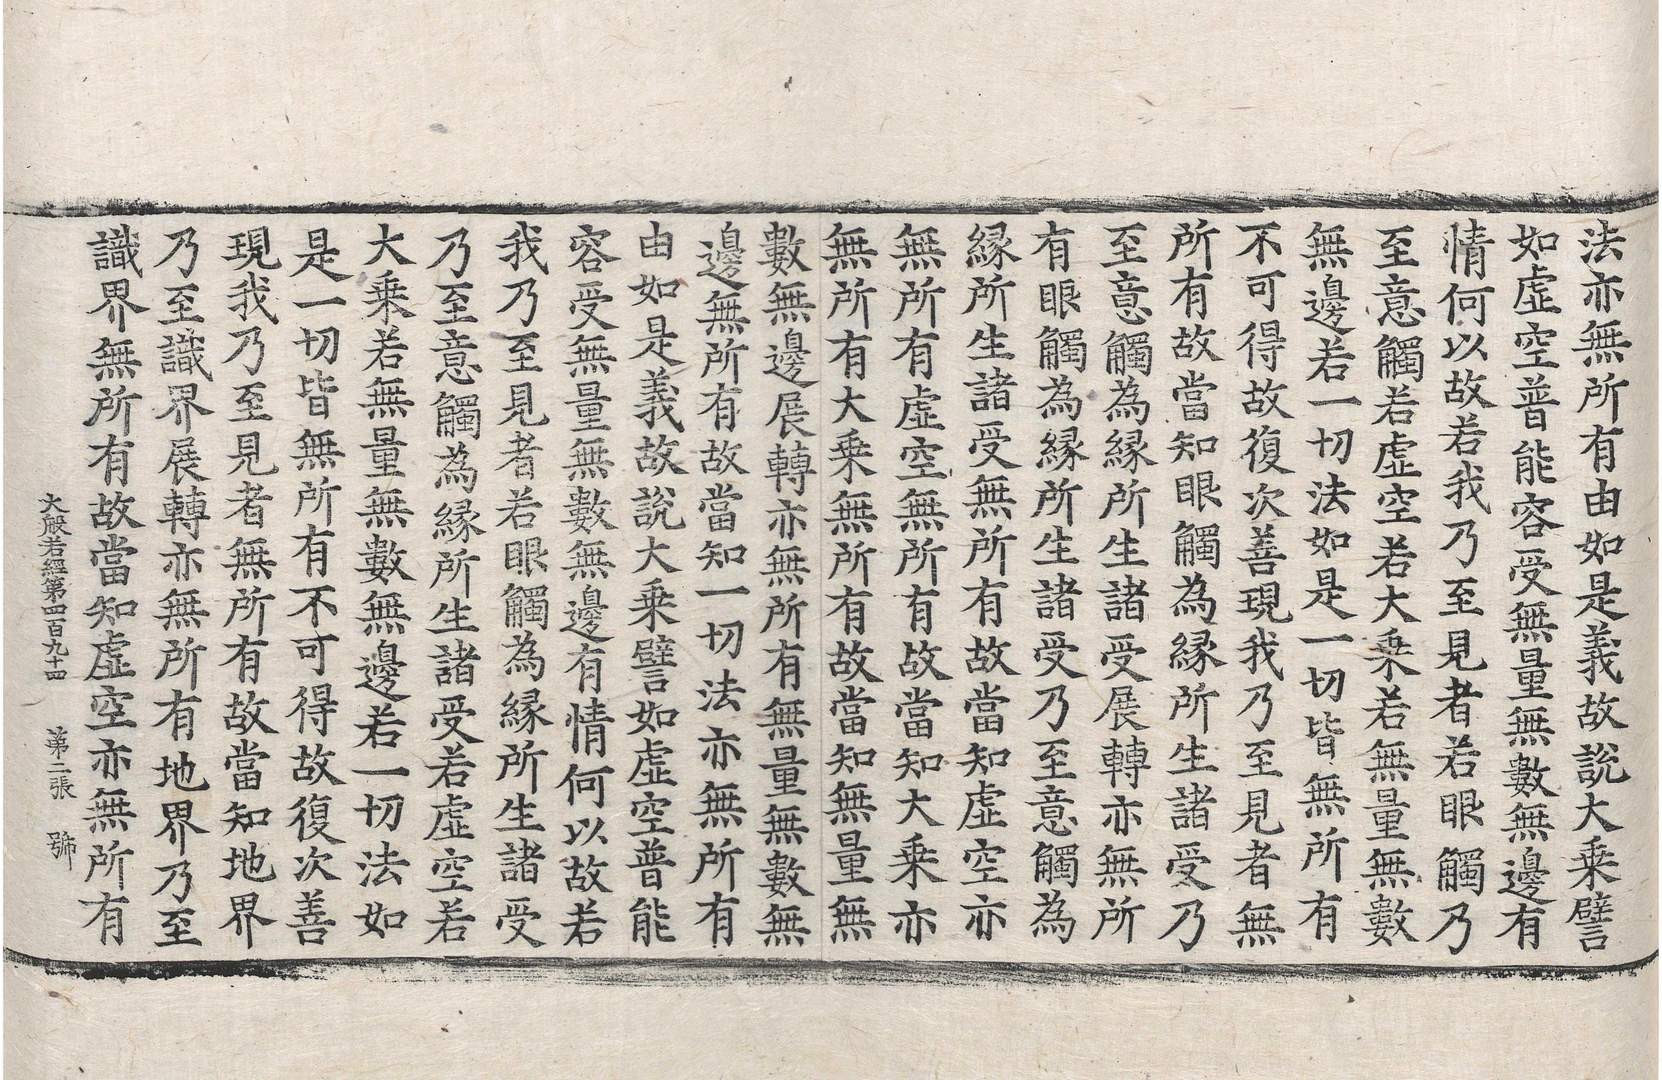 法亦無所有由如是義故說大乗譬
如虛空普能容受無量無數無邊有
情何以故若我乃至見者若眼觸乃
至意觸若虛空若大乗若無量無數
無邊若一切法如是一切皆無所有
不可得故復次善現我乃至見者無
所有故當知眼觸為緣所生諸受乃
至意觸為緣所生諸受展轉亦無所
有眼觸為緣所生諸受乃至意觸為
緣所生諸受無所有故當知虛空亦
無所有虛空無所有故當知大乗亦
無所有大乗無所有故當知無量無
數無邊展轉亦無所有無量無數無
邊無所有故當知一切法亦無所有
由如是義故說大乗譬如虛空普能
容受無量無數無邊有情何以故若
我乃至見者若眼觸為緣所生諸受
乃至意觸為緣所生諸受若虛空若
大乗若無量無數無邊若一切法如
是一切皆無所有不可得故復次善
現我乃至見者無所有故當知地界
乃至識界展轉亦無所有地界乃至
識界無所有故當知虛空亦無所有
大般若經第四百九十四 第二張 號